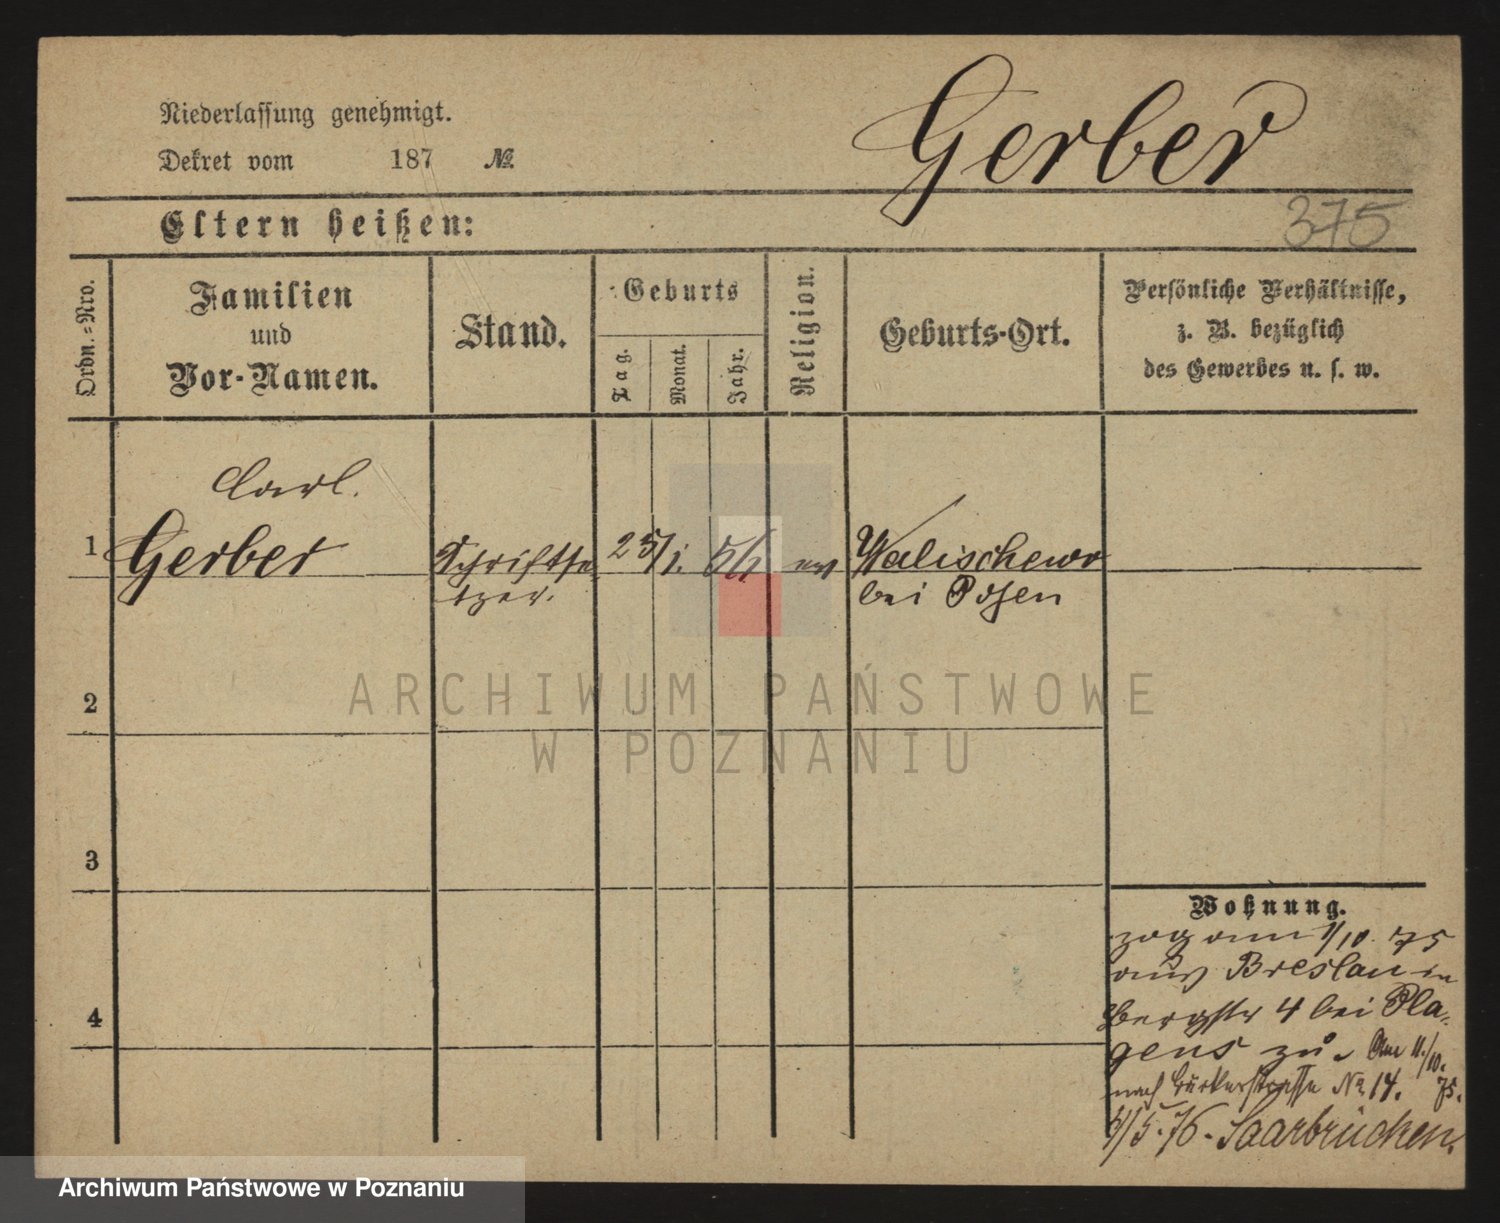 Niederlassung genehmigt.
Dekret vom 187 №
Gerber
375
Eltern heißen:
Ordn.-Nro.
Familien
und
Vor-Namen.
Stand.
Geburts
Tag.
Monat.
Jahr.
Religion.
Geburts-Ort.
Persönliche Verhältnisse,
z. B. bezüglich
des Gewerbes u. s. w.
Carl.
1 Gerber Schriftse 25/1. ev
tzer. bei Posen
2
ARCHIWUM PAŃSTWOWE
W POZNANIU
3
4
Wohnung.
zog am 1/10. 75
aus Breslau in
Bergstr 4 bei Pla-
gens zu. Am 11./10.
nach No 14. 75.
5/5.76. Saarbrücken.
Archiwum Państwowe w Poznaniu